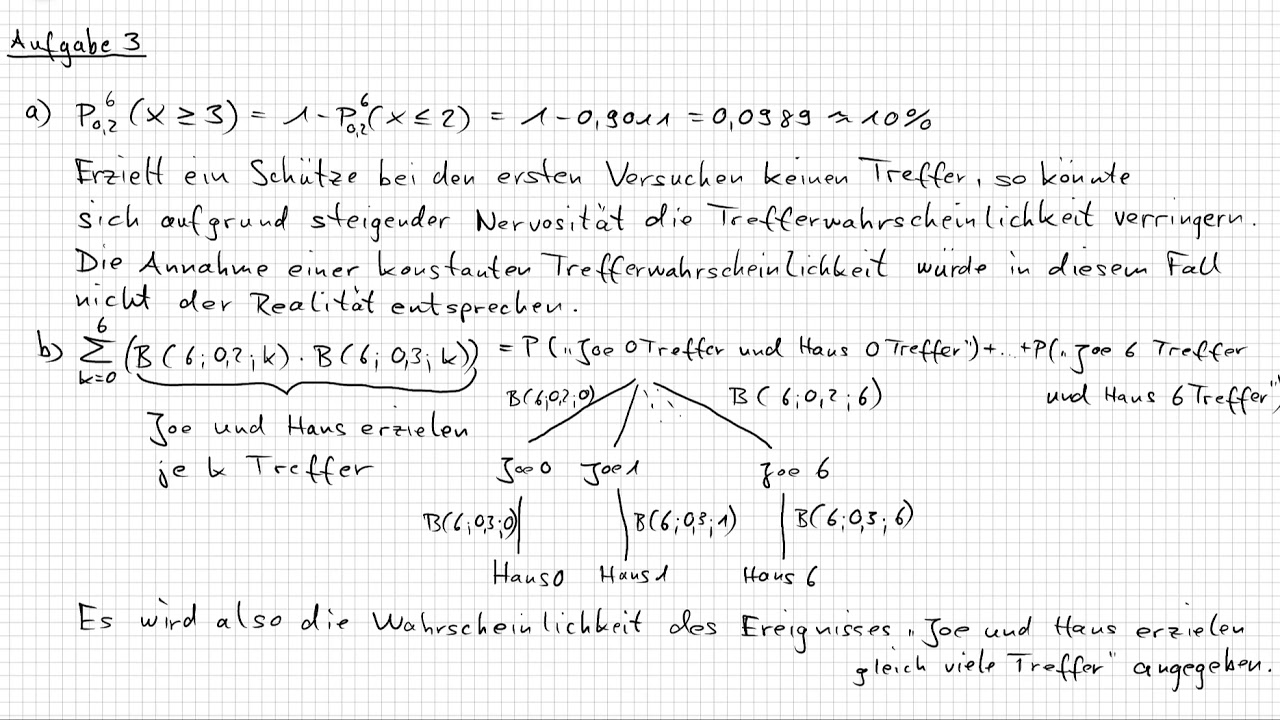 Aufgabe 3
a) P⁶₀,₂ (X ≥ 3) = 1 - P⁶₀,₂ (X ≤ 2) = 1 - 0,9011 = 0,0989 ≈ 10%
Erzielt ein Schütze bei den ersten Versuchen keinen Treffer, so könnte
sich aufgrund steigender Nervosität die Trefferwahrscheinlichkeit verringern.
Die Annahme einer konstanten Trefferwahrscheinlichkeit würde in diesem Fall
nicht der Realität entsprechen.
6
b) Σ (B(6; 0,2; k) · B(6; 0,3; k)) = P(„Joe 0 Treffer und Hans 0 Treffer")+...+P(„Joe 6 Treffer
k=0
und Hans 6 Treffer")
B(6;0,2;0) B(6;0,2;6)
Joe und Hans erzielen
je k Treffer
Joe 0 Joe 1 Joe 6
B(6;0,3;0) B(6;0,3;1) B(6;0,3;6)
Hans 0 Hans 1 Hans 6
Es wird also die Wahrscheinlichkeit des Ereignisses „Joe und Hans erzielen
gleich viele Treffer" angegeben.